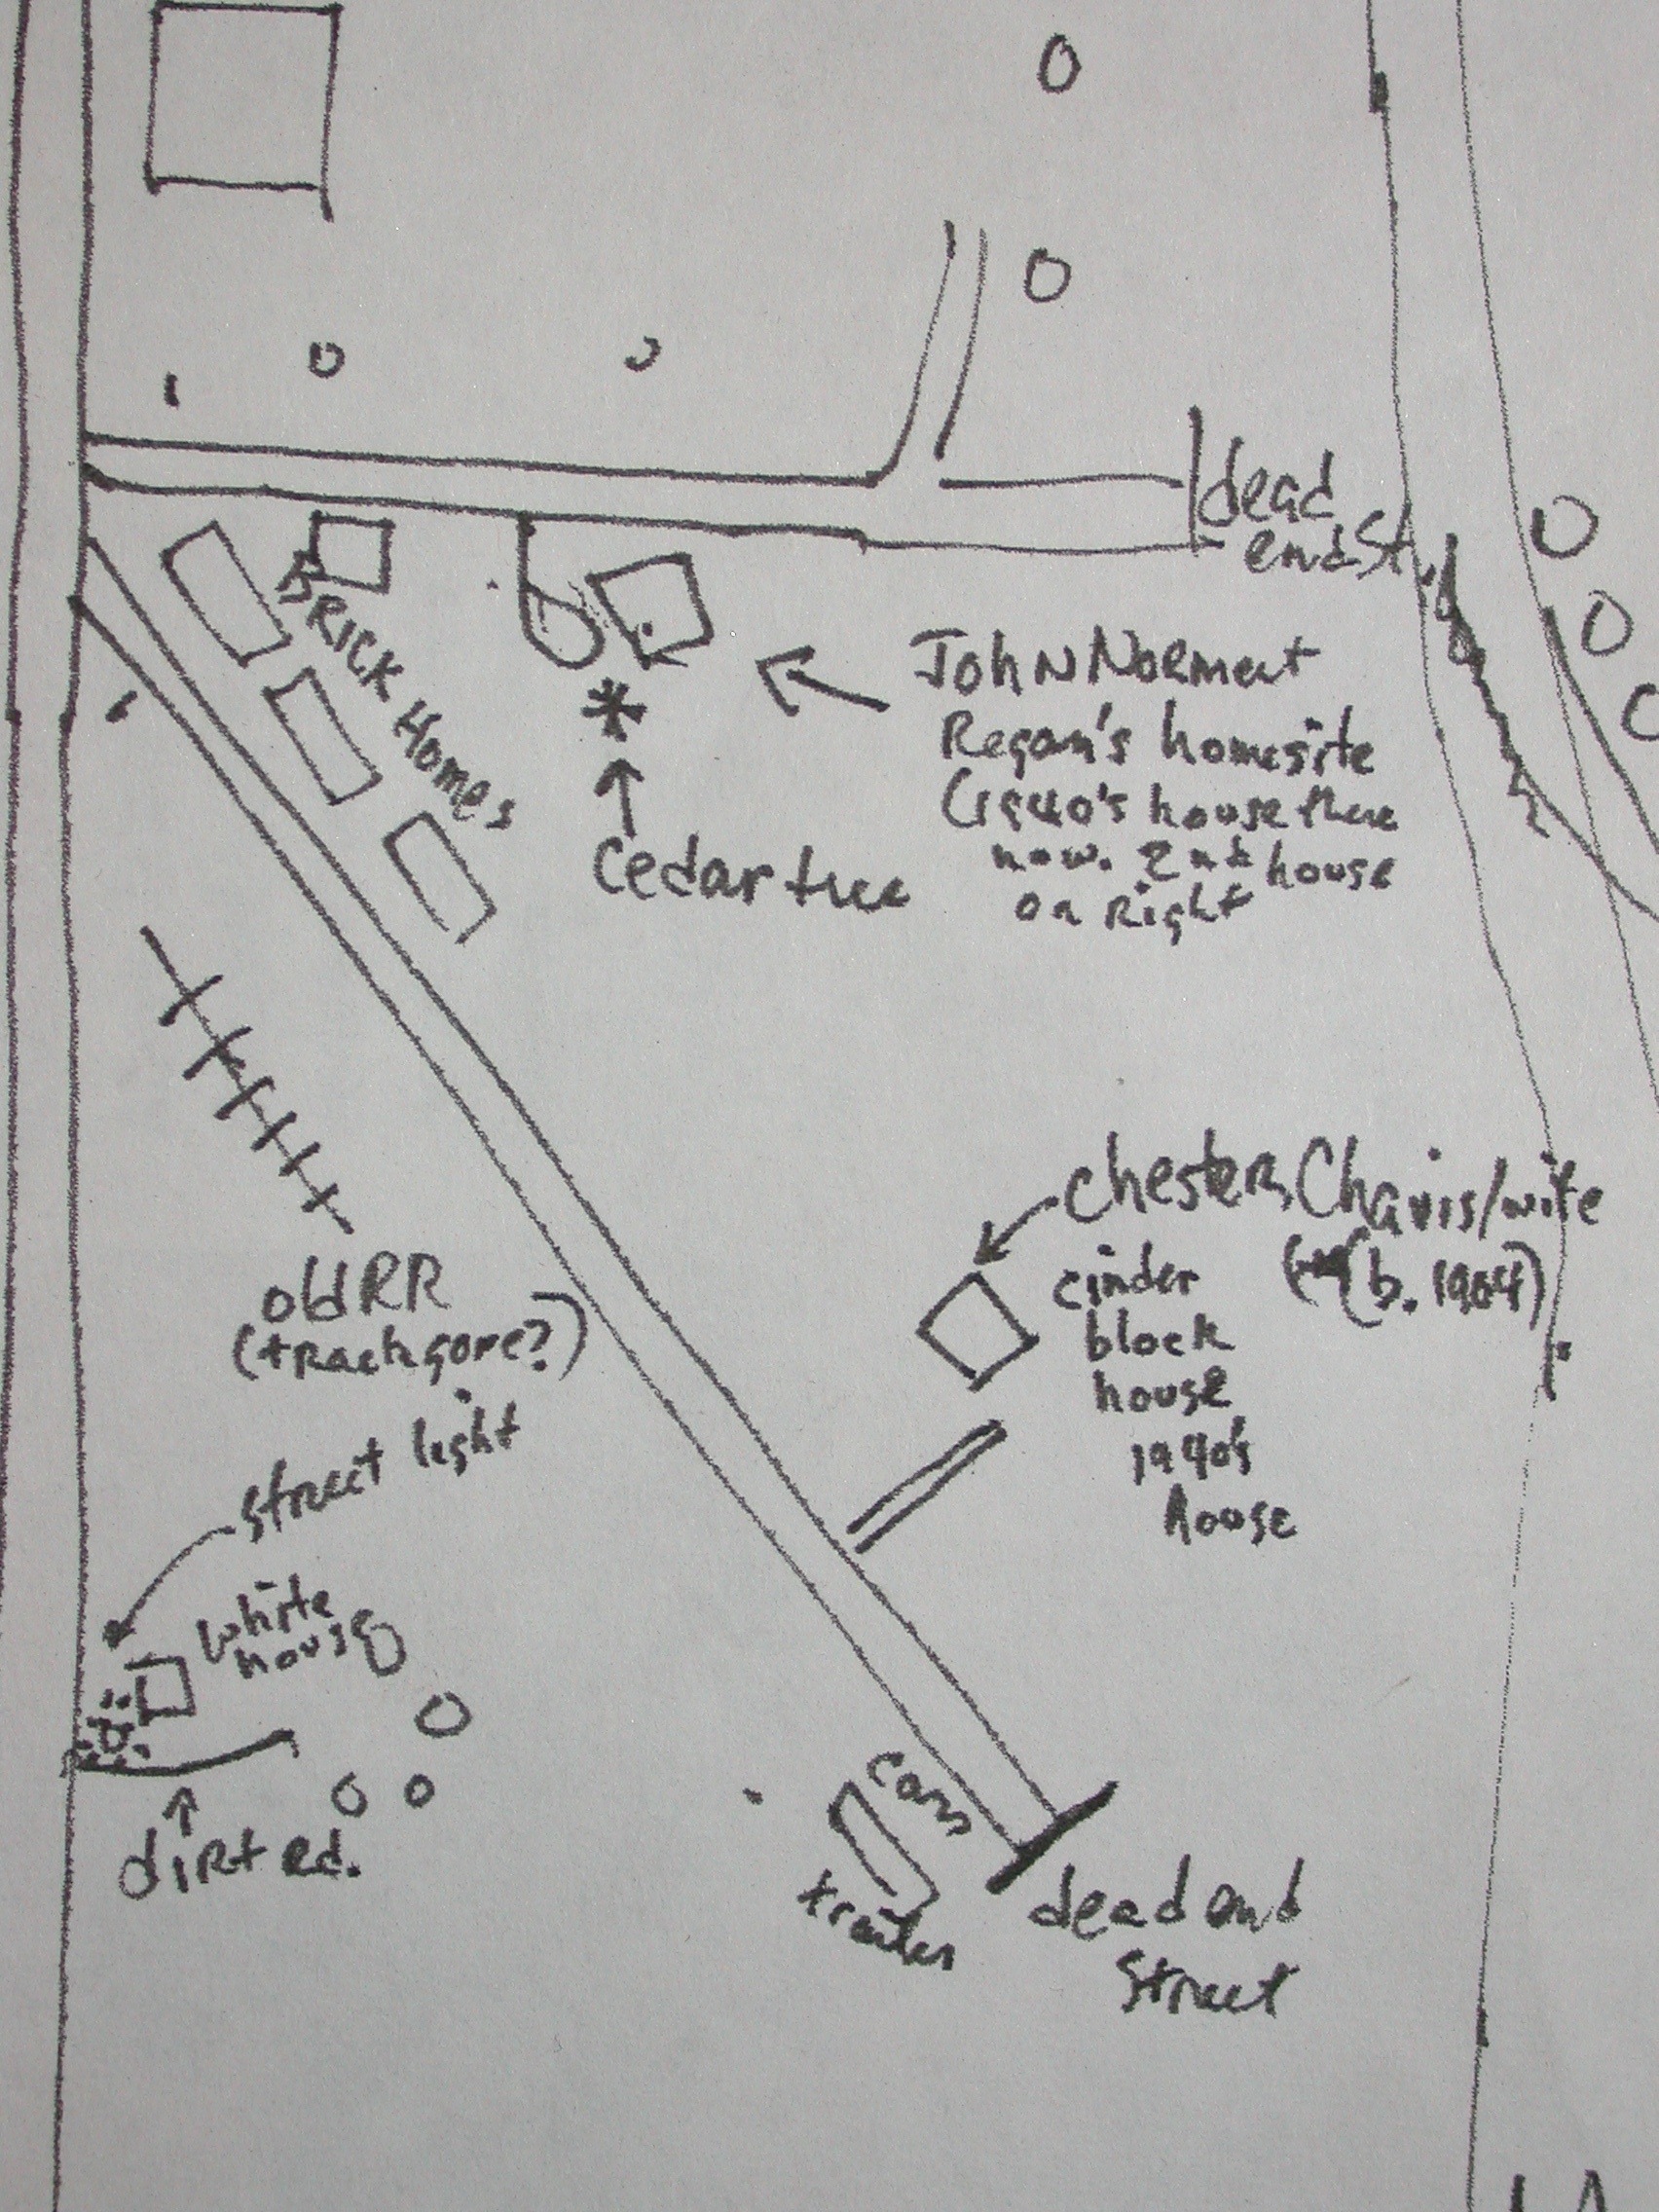 dead
end St.
Brick Homes
John Norment
Regan's homesite
house there
now. 2nd house
on Right
Cedar tree
Chester Chavis/wife
(b. 1904)
cinder
block
house
1940's
house
old RR
(track gone?)
street light
white
house
dirt Rd.
cars
trailer
dead end
Street